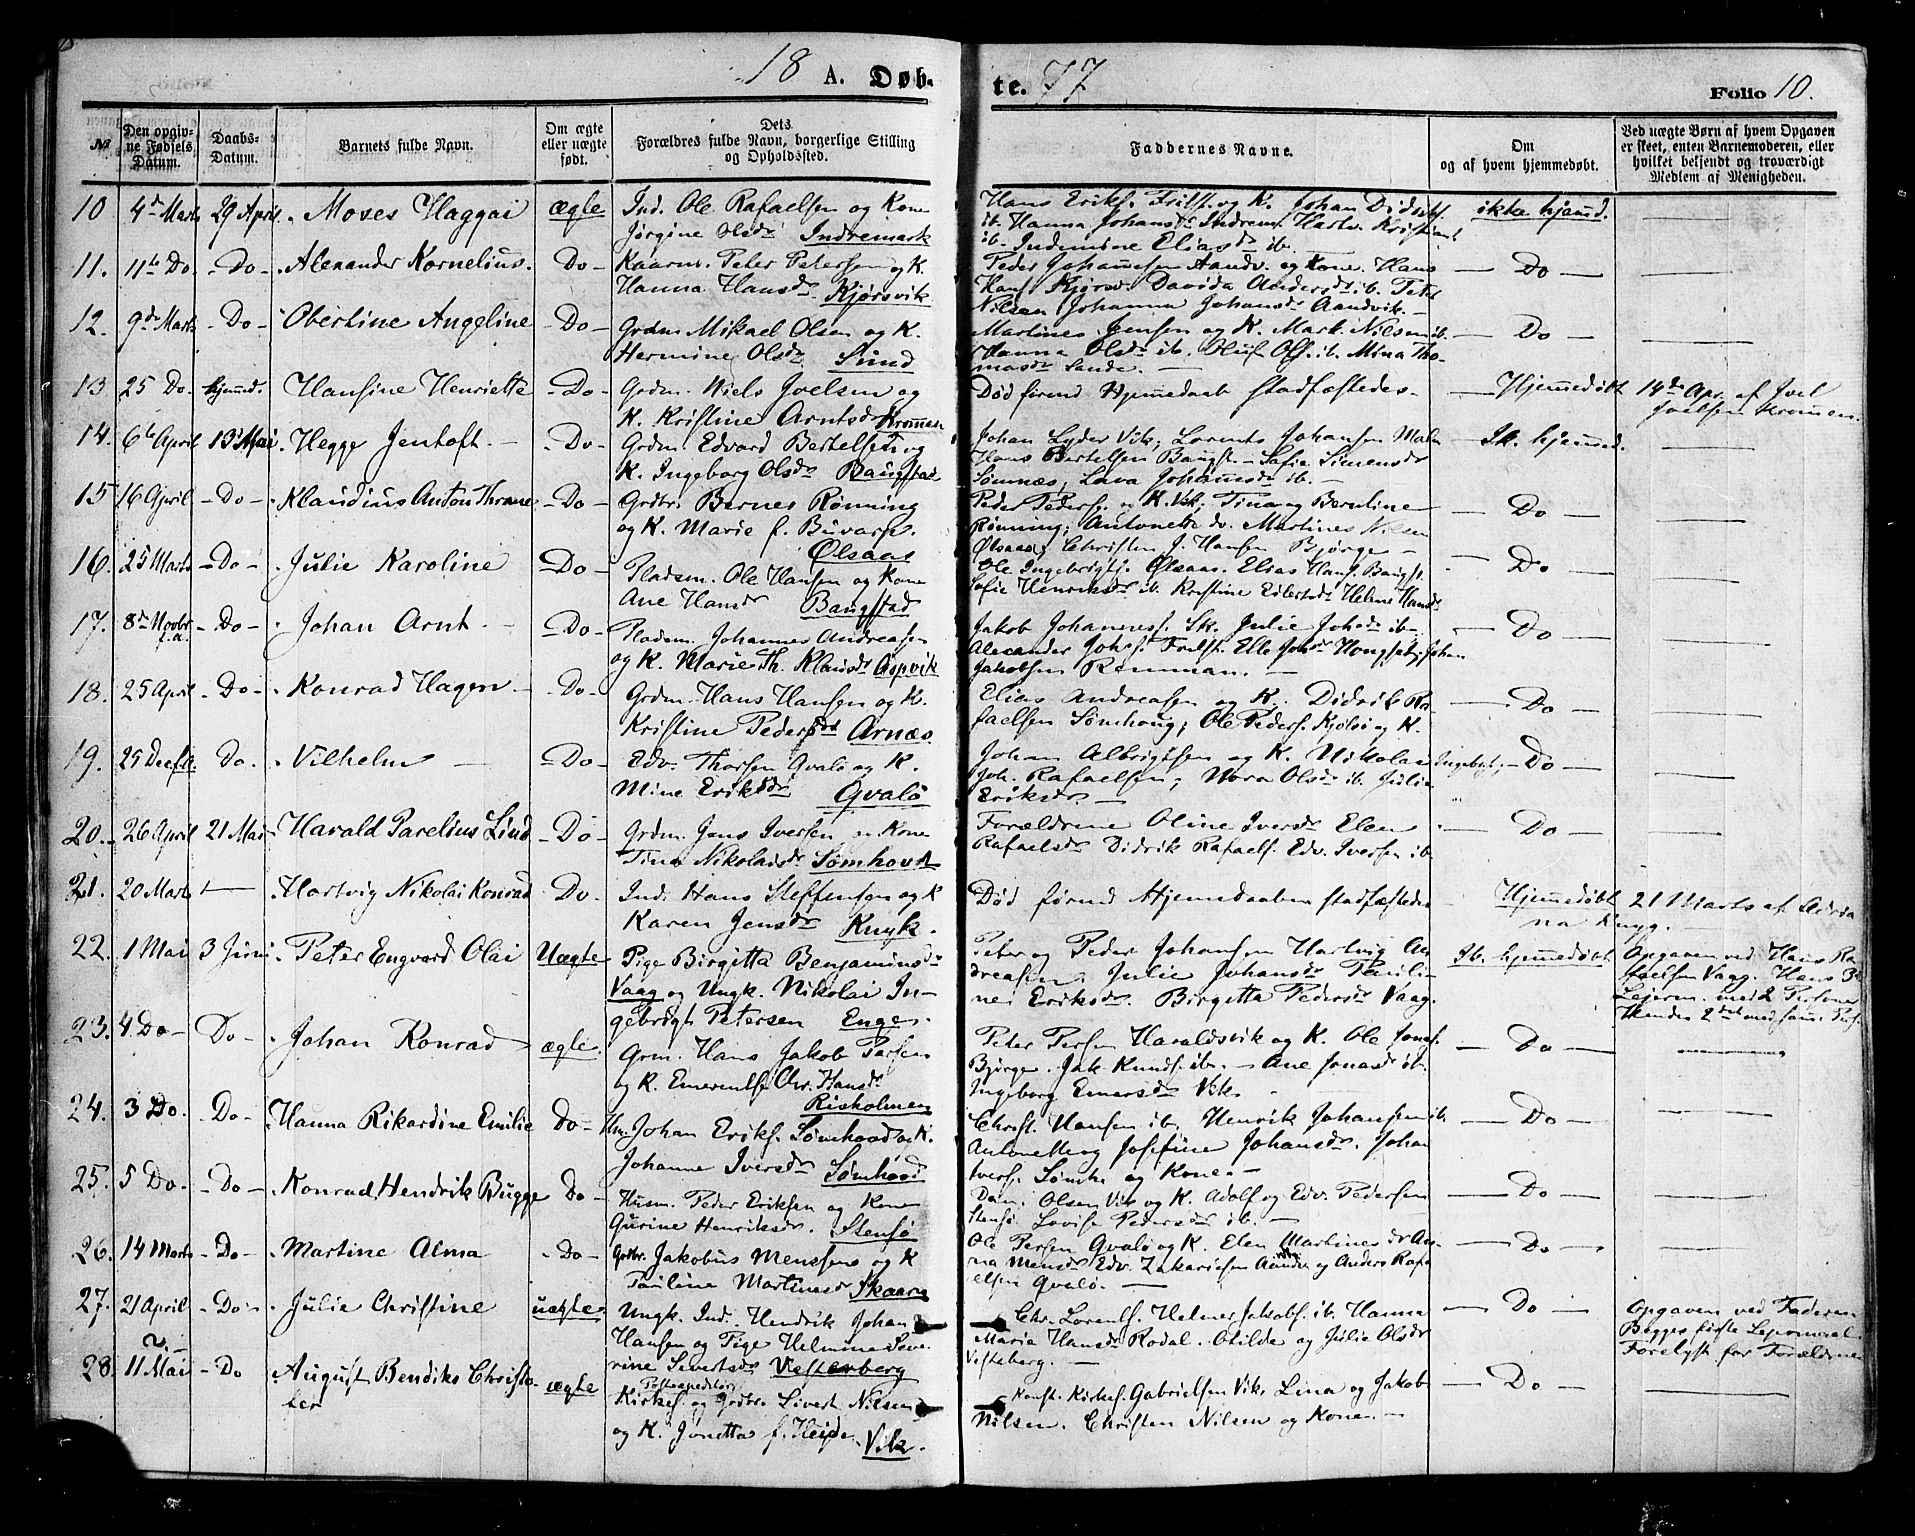 18 A. Døb-
te. 77
Folio 10.
№
Den opgivne Fødsels Datum.
Daabs-Datum.
Barnets fulde Navn.
Om ægte eller uægte født.
Dets Forældres fulde Navn, borgerlige Stilling og Opholdssted.
Faddernes Navne.
Om og af hvem hjemmedøbt.
Ved uægte Børn af hvem Opgaven er skeet, enten Barnemoderen, eller hvilket bekjendt og troværdigt Medlem af Menigheden.
10 4de Marts 29 April Moses Haggai ægte Ind. Ole Rafaelsen og Kone
Jørgine Olsdr Indremark
Hans Eriks. Fritst. og K. Johan Didriks.
ib. Hanna Johansdr Indrem. Hartv. Kristians.
ib. Indemine Eliasdr ib.
ikke hjemd.
11. 11te Do - Do - Alexander Kornelius. Do - Kaarm. Peter Petersen og K.
Hanna Hansdr Kjørsvik
Peder Johannesen Aandv. og Kone. Hans
Hans. Kjørsv. Davida Andersdr ib. Peter
Nilsen Johanna Johansdr Aandvik.
- Do -
12. 9de Marts - Do - Obertine Angeline - Do - Grdm. Mikael Olsen og K.
Hermine Olsdr Sund
Martines Jensen og K. Mark. Nilsen ib.
Hanna Olsdr ib. Oluf Ols. ib. Mina Tho-
masdr Sande.
- Do -
13 25 Do. hjemmd. Hansine Henriette - Do - Grdm. Niels Joelsen og
K. Kristine Arntsdr Kromman
Død førend Hjemmedaab stadfæstedes -
Hjemmedøbt 14de Apr. af Joel
Joelsen Krommen.
14. 6te April 13 Mai Hegge Jentoft - Do - Grdm. Edvard Bertelsen og
K. Ingeborg Olsdr Bangstad
Johan Lyder Vik; Lorents Johansen Malm
Hans Bertelsen Bangst. - Sofie Simensdr
Sømnæs, Lava Johannesdr ib. -
Ik. hjemmd.
15 16 April - Do - Klaudius Anton Thrane - Do - Grdbr. Bernes Rønning
og K. Marie f. Buvarp.
Ølsaas
Peder Peders. og K. Vik; Tina og Berntine
Rønning; Antonette dv. Martines Nilsen
Ølsaas; Christen J. Hansen Bjørge -
- Do -
16. 25 Marts - Do - Julie Karoline - Do - Pladsm. Ole Hansen og Kone
Ane Hansdr Bangstad
Ole Ingebrigts. Ølsaas. Elias Hans. Bangst.
Sofie Henriksdr ib. Kristine Eilertsdr Helene Hansdr
- Do -
17. 8de Novbr f.a. - Do - Johan Arnt - Do - Pladsm. Johannes Andreasen
og K. Marie Th. Klausdr Aspvik
Jakob Johanness. Sk. Julie Johsdr ib.
Alexander Johs. Fritst. Elle Johsdr Hongset; Johan
Jakobsen Remman. -
- Do -
18. 25 April - Do - Konrad Hagen - Do - Grdm. Hans Hansen og K.
Kristine Pedersdr Arnæs.
Elias Andreassen og K. Didrik Ra-
faelsen Sømhoug; Ole Peders. Kjølsø og K.
- Do
19. 25 Dec f.A. Do. Vilhelm - Do - Edv. Thorsen Qvalø og K.
Mine Eriksdr Qvalø
Johan Albrigtsen og K. Nikolai Ingebrgt;
Joh. Rafaelsen; Nora Olsdr ib. Julia
Eriksdr. -
- Do -
20. 26 April 21 Mai Harald Parelius Lind - Do - Grdm. Jens Iversen og Kone
Tina Nikolaisdr Sømhovd
Forældrene Oline Iversdr Elen
Rafaelsdr Didrik Rafaels. Edv. Iversen ib.
- Do -
21. 20 Marts - Hartvig Nikolai Konrad Do - Ind. Hans Steffensen og K
Karen Jensdr Knyk.
Død førend Hjemmedaaben stadfæstedes
Hjemmedøbt 21 Marts af Adria
na Knyg.
22. 1 Mai 3 Juni Peter Engvard Olai Uægte Pige Birgitta Benjaminsdr
Vaag og Ungk. Nikolai In-
gebrigt Petersen Enge.
Peter og Peder Johansen Hartvig An-
dreasen, Julie Johansdr Pauli-
ne Eriksdr. Birgitta Pedersdr Vaag.
Ik. hjemmedøbt
Opgaven ved Hans Ra-
faelsen Vaag. Hans 3de
Leierm. med 2 Personer
Hendes 2det med samme Per.
23. 4 Do - Do - Johan Konrad ægte. Grm. Hans Jakob Persen
og K. Emerentse Chr. Hansdr
Risholmen
Peter Persen Haraldsvik og K. Ole Jons.
Bjørge. Jak. Knuds. ib. - Ane Jonasdr ib.
Ingeborg Einarsdr Vik.
- Do -
24. 3 Do. - Do - Hanna Rikardine Emilie Do - Hm. Johan Eriks. Sømhovd og K.
Johanne Iversdr Sømhovd
Christ. Hansen ib. Henrik Johansen ib.
Antonette og Josefine Johansdr. Johan
Ivers. Sømh. og Kone. -
- Do -
25. 5 Do. - Do - Konrad Hendrik Bugge Do - Husm. Peder Eriksen og Kone
Gurine Henriksdr. Stensø
Dan. Olsen Vik og K. Adolf og Edv. Pedersen
Stensø Lovise Pedersdr ib. -
- Do -
26. 14 Marts - Do - Martine Alma - Do - Grdbr. Jakobus Mensen og K
Pauline Martinesdr Skaarn
Ole Persen Qvalø og K. Elen Martinesdr An-
na Mensdr Edv. Zakariesen og Anders Rafa-
elsen Qvalø. -
- Do -
27. 21 April - Do - Julie Christine uægte Ungk. Ind. Hendrik Johan
Hansen og Pige Helmine Seve-
rine Sivertsdr Vesterberg
Chr. Lorents. Helmer Jakobs. ib. Hanna
Maria Hansdr Rodal. Otilde og Julie Olsdr
Vesteberg. -
- Do -
Opgaven ved Faderen
Begges første Leiermaal.
Forelyst for Forældrene
28. 11 Mai - Do August Bendiks Christo-
fer ægte Postexpeditør
Kirkes. og Grdbr. Sivert Nilsen
og K. Jonetta f. Heide. Vik.
Konst. Kirkes. Gabrielsen Vik, Lina og Jakob
Nilsen. Christen Nilsen og Kone. -
- Do -